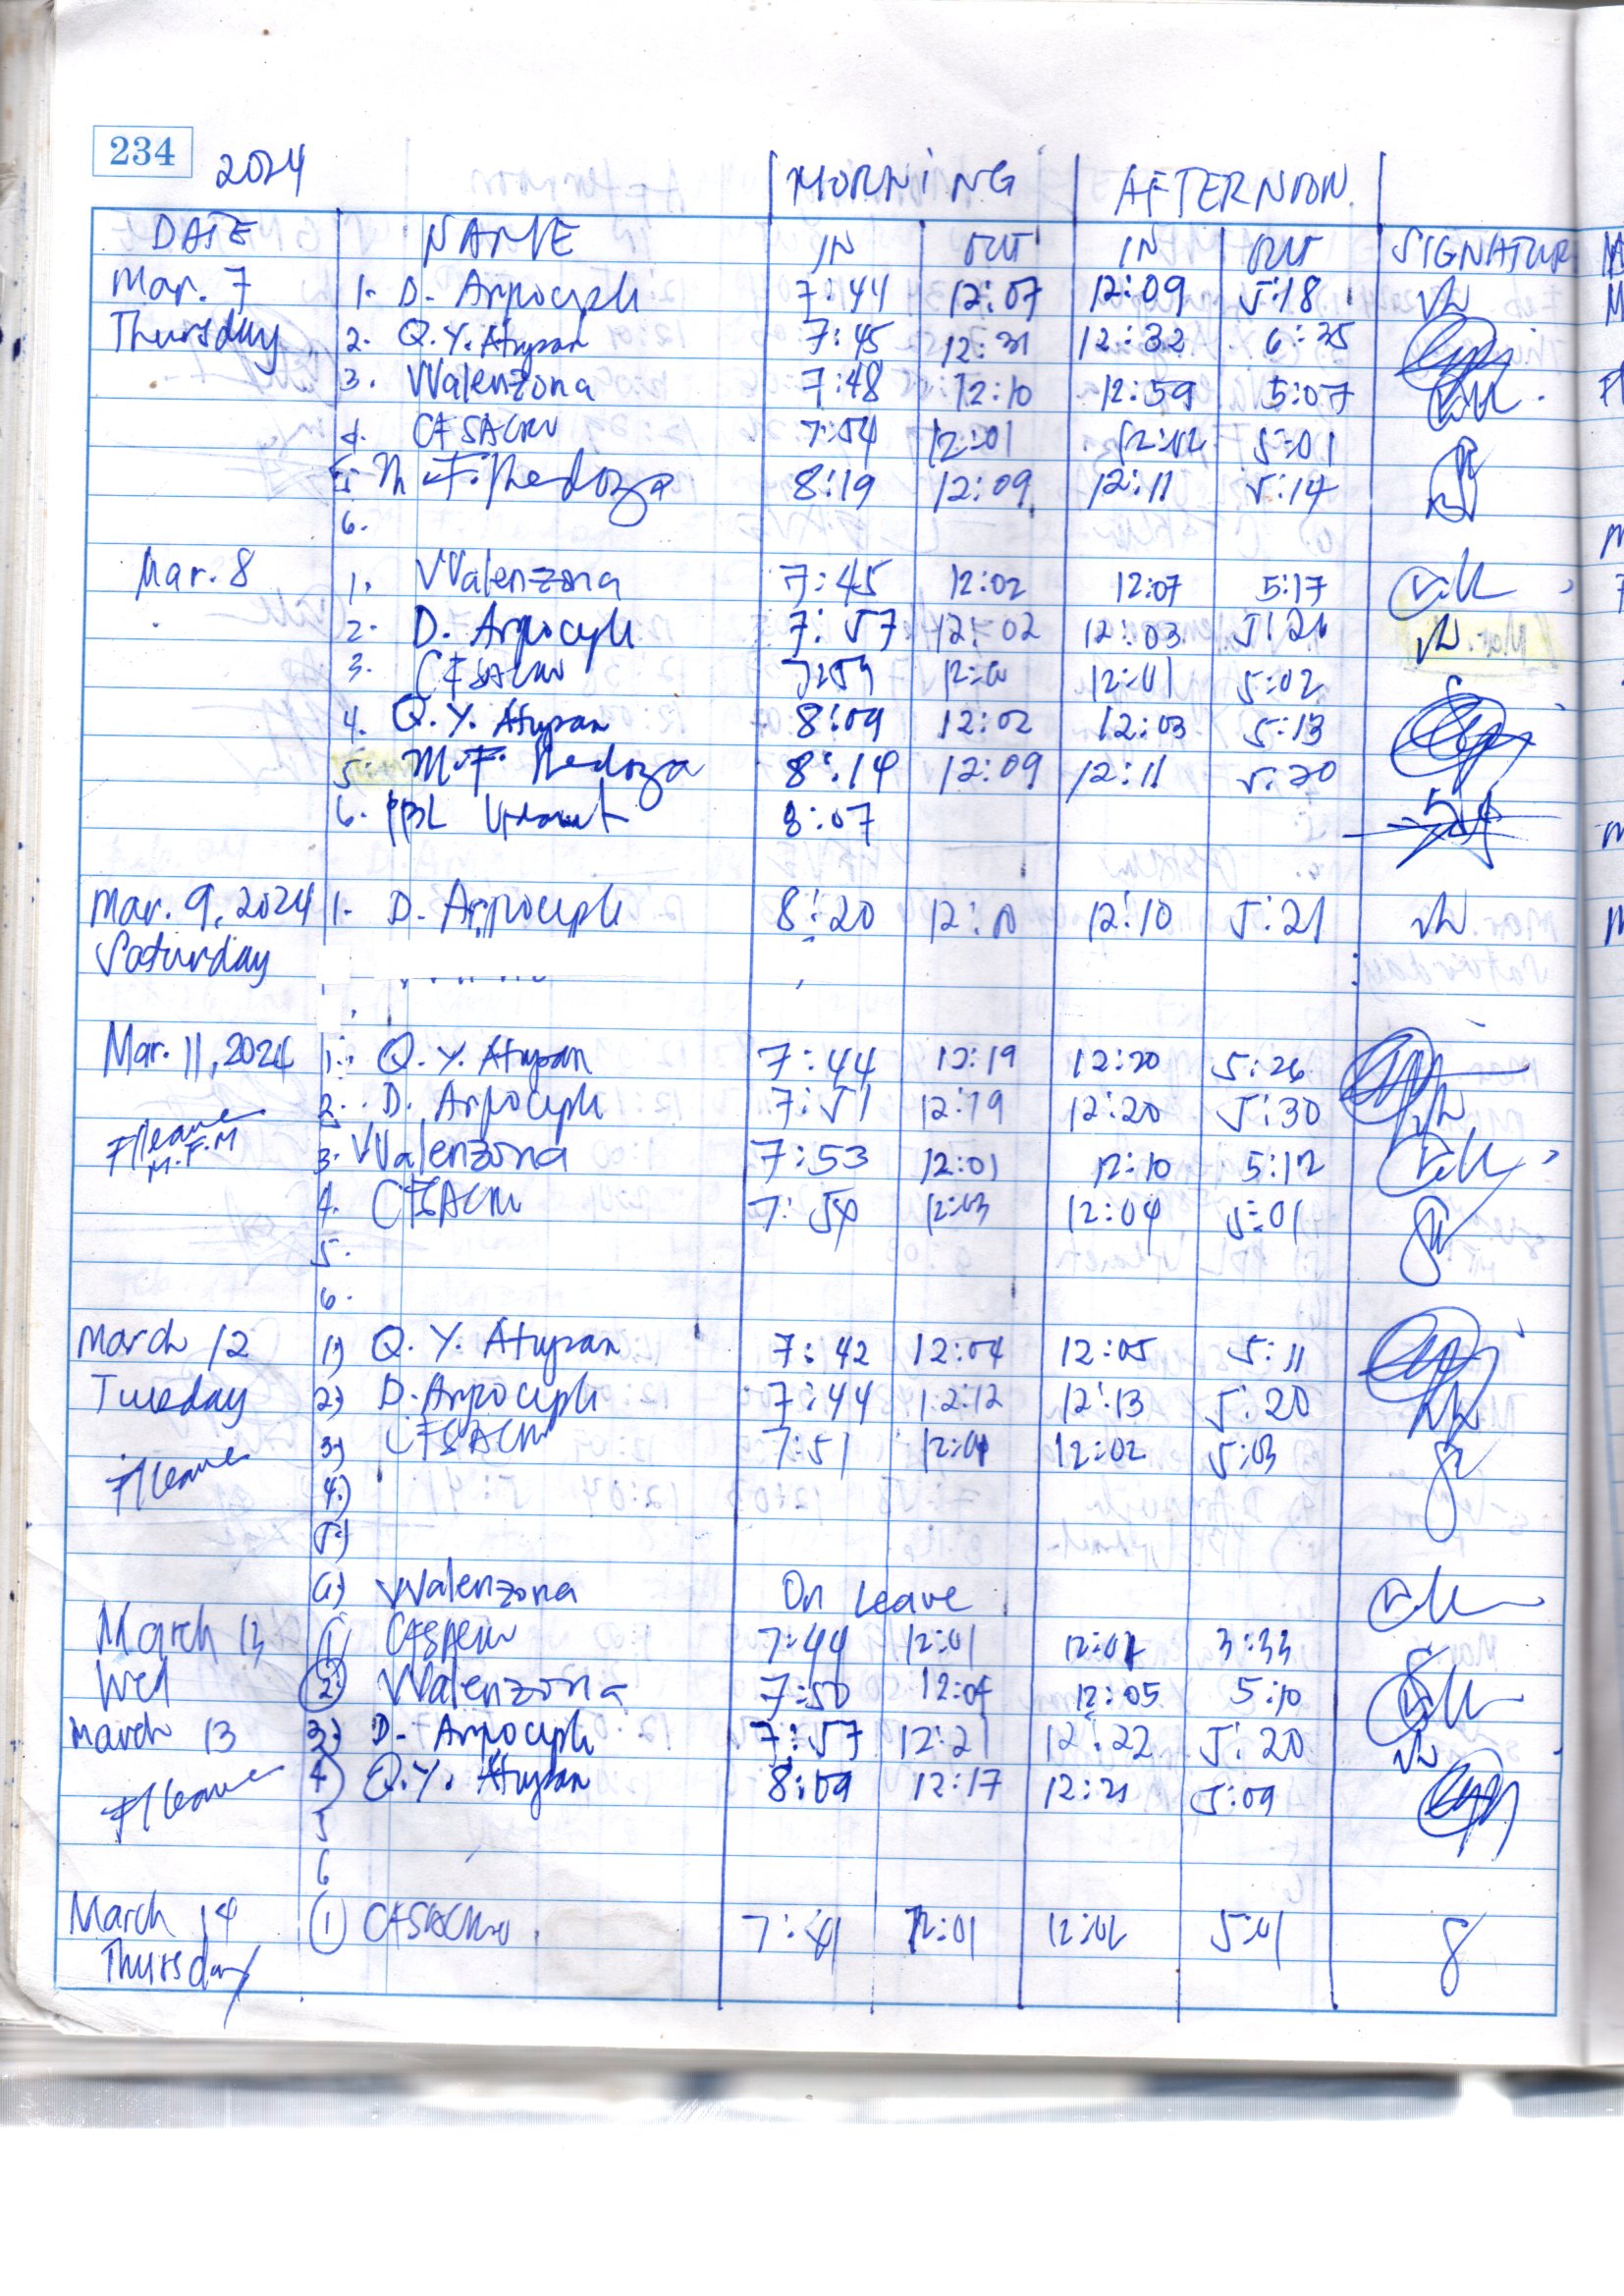 234 2024 MORNING AFTERNOON
DATE NAME IN OUT IN OUT SIGNATUR
Mar. 7 1. D. 7:44 12:07 12:09 5:18
Thursday 2. Q.Y. Atupan 7:45 12:31 12:32 6:35
3. VValenzona 7:48 12:10 12:59 5:07
4. 7:54 12:01 12:02 5:01
5. M.F. Medoza 8:19 12:09 12:11 5:14
6.
Mar. 8 1. VValenzona 7:45 12:02 12:07 5:17
2. D. 7:57 12:02 12:03
3. 7:59 12:01 5:02
4. Q.Y. Atupan 8:09 12:02 12:03 5:13
5. M.F. Medoza 8:14 12:09 12:11 5:20
6. PBL 8:07
Mar. 9, 2024 1. D. 8:20 12:10 5:21
Saturday
Mar. 11, 2024 1. Q.Y. Atupan 7:44 12:19 12:20 5:26
2. D. 7:51 12:19 12:20 5:30
F/leave
M.F.M
3. VValenzona 7:53 12:01 12:10 5:12
4. 7:54 12:03 12:04 5:01
5.
6.
March 12 1) Q.Y. Atupan 7:42 12:04 12:05 5:11
Tuesday 2) D. 7:44 12:12 12:13 5:20
3) 7:51 12:02 5:03
F/leave 4)
5)
6) VValenzona On Leave
March 13 1 7:44 12:01 12:02 3:33
Wed 2. VValenzona 7:50 12:04 12:05 5:10
March 13 3) D. 7:57 12:21 12:22 5:20
F/leave 4) Q.Y. Atupan 8:09 12:17 12:21 5:09
5
6
March 14 1 7:41 12:01 12:02 5:01
Thursday